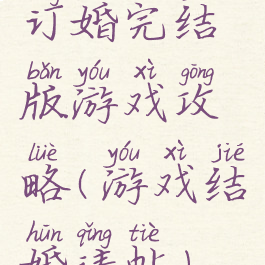 订婚完结
bǎn yóu xì gōng
版游戏攻
lüè yóu xì jié
略(游戏结
hūn qǐng tiè